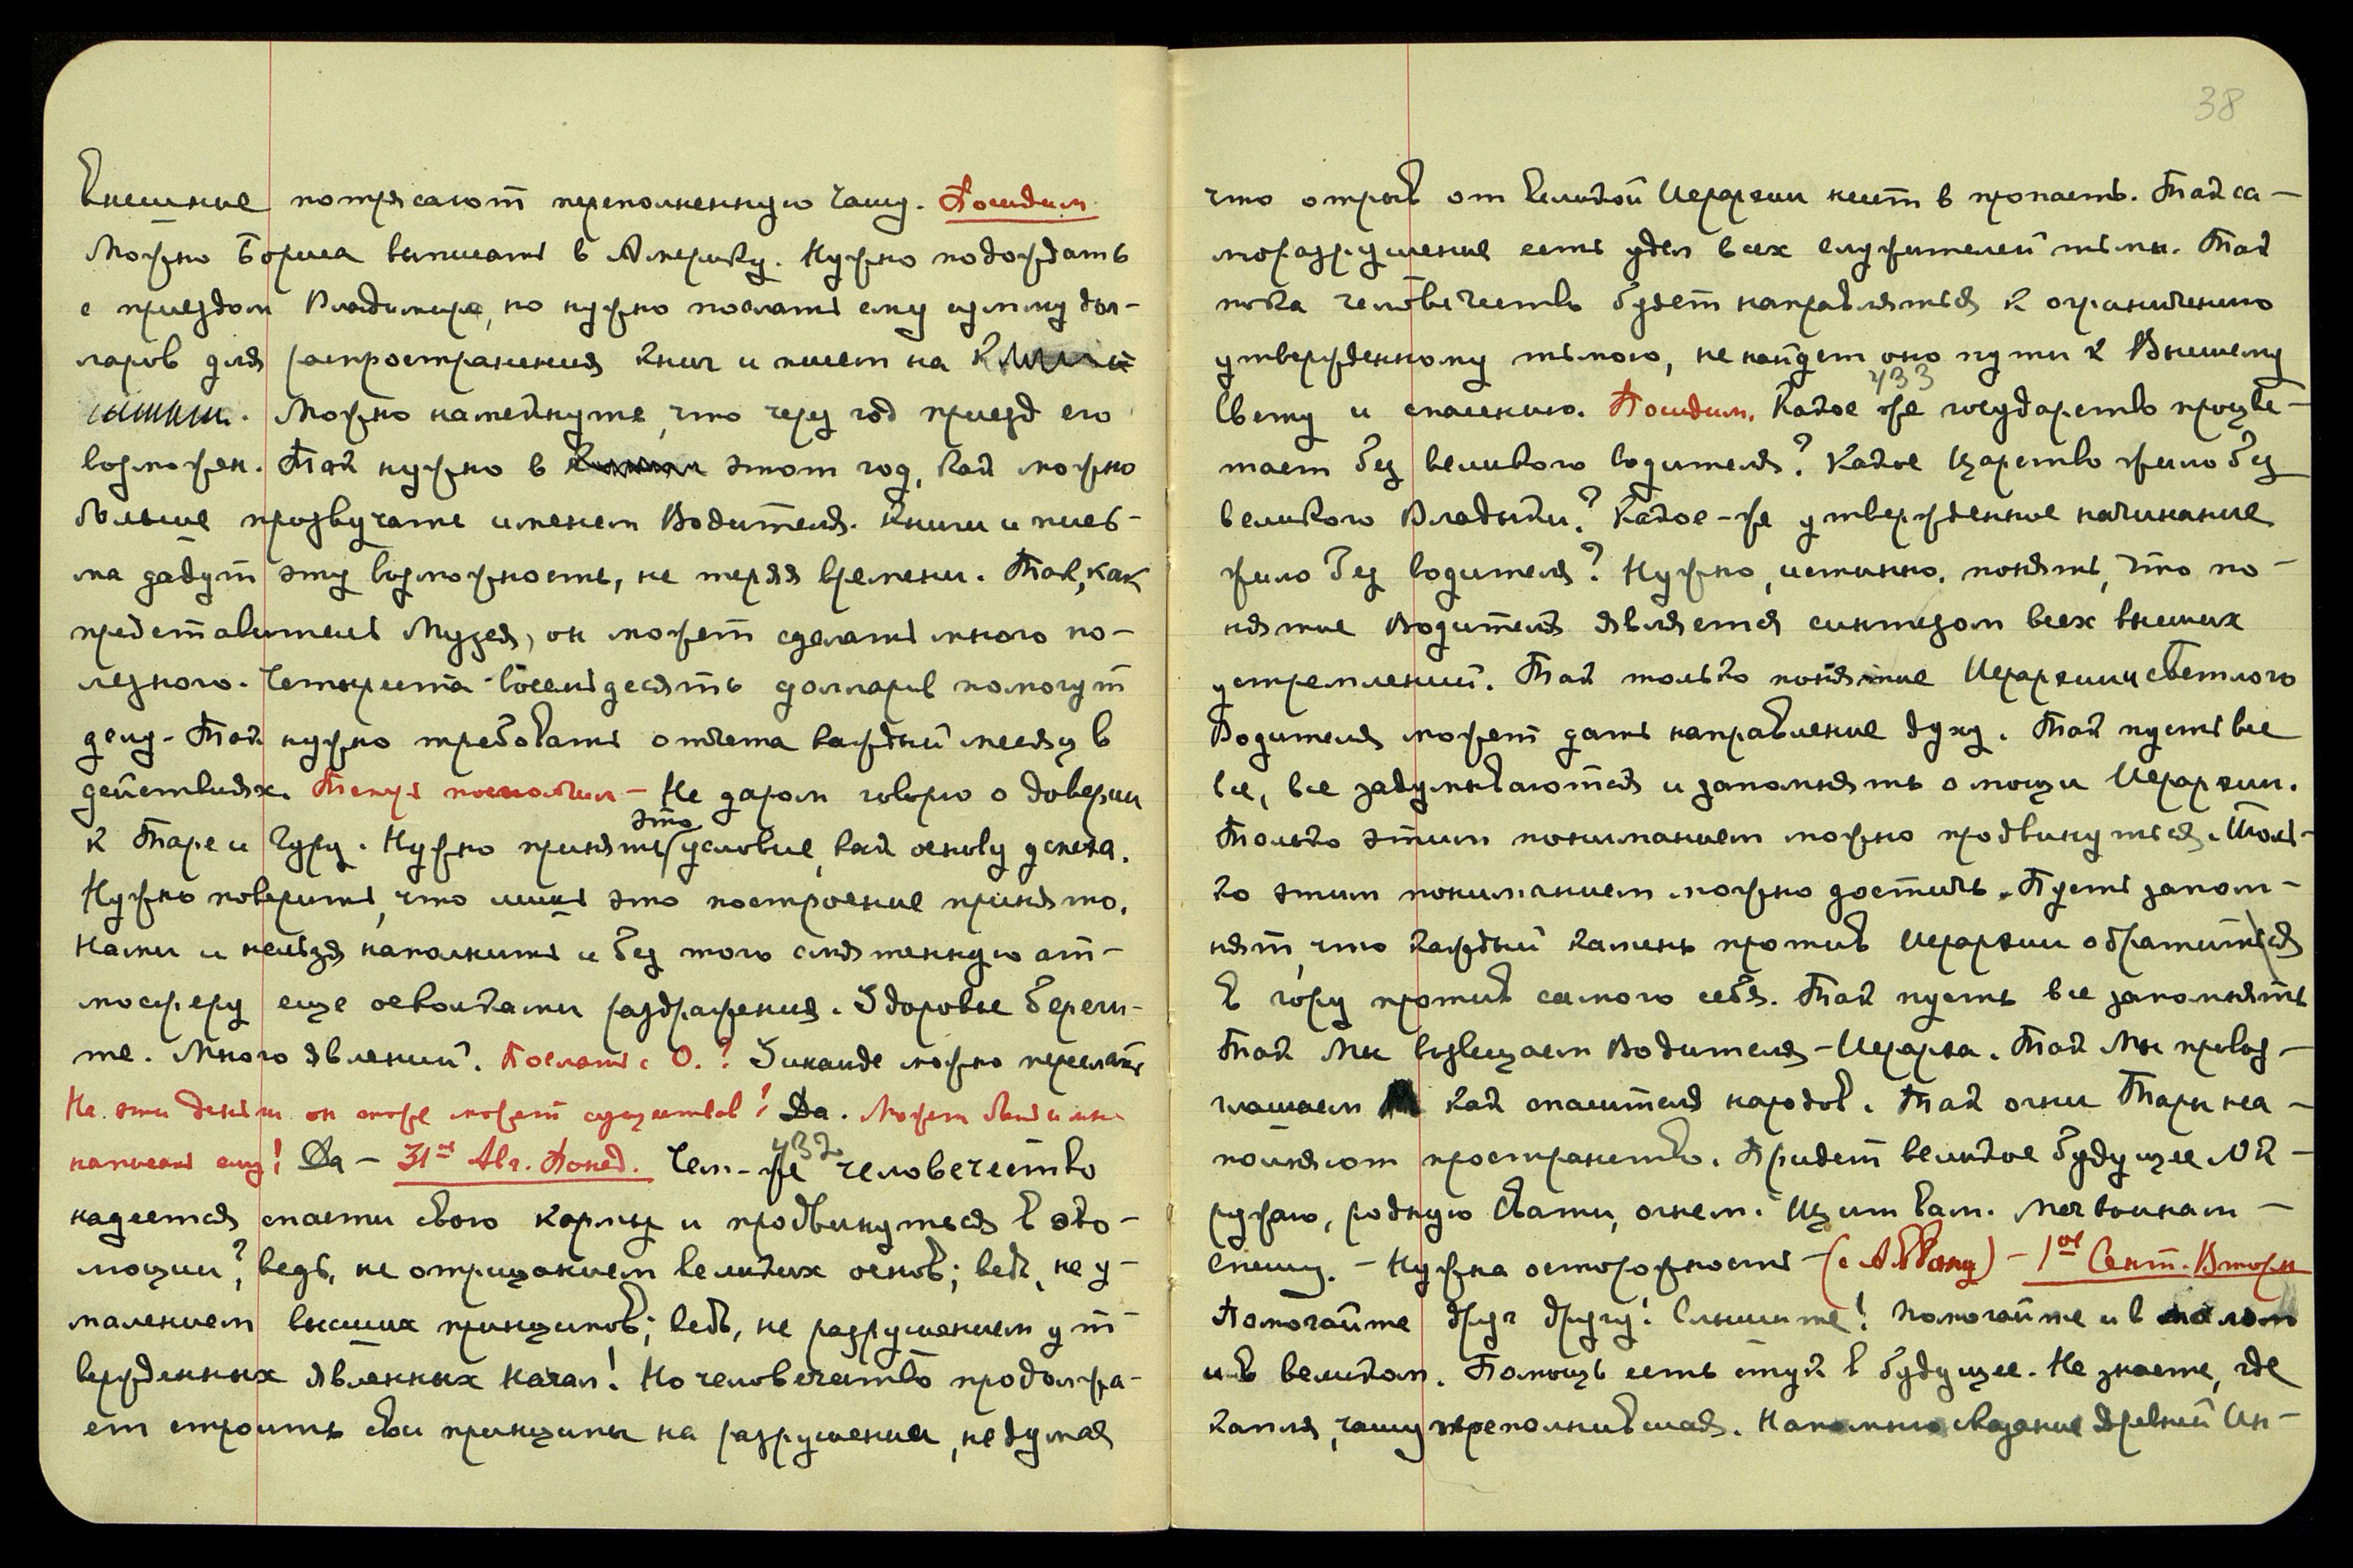 внешние потрясают переполненную чашу. Посидим
Можно Бориса выписать в Америку. Нужно подождать
с приездом Владимира, но нужно послать ему сумму дол-
ларов для распространения книг и писем на
Можно намекнуть, что через год приезд его
возможен. Так нужно в этот год, как можно
больше прозвучать именем Водителя. Книги и пись-
ма дадут эту возможность, не теряя времени. Так, как
представитель Музея, он может сделать много по-
лезного. Четыреста восемьдесят долларов помогут
делу. Так нужно требовать отчета каждый месяц в
действиях. Теперь посмотрим — Не даром говорю о доверии
к Таре и Гуру. Нужно принять это условие, как основу успеха.
Нужно поверить, что лишь это построение принято.
Нами и нельзя наполнить и без того смятенную ат-
мосферу еще осколками раздражения. Здоровье береги-
те. Много явлений. Послать с О.? Зинаиде можно переслать
На эти деньги он тоже может существов? Да. Может быть и мне
написать ему! Да — 31ое Авг. Понед. 432 Чем-же человечество
надеется спасти свою карму и продвинуться в эво-
люции?, ведь, не отрицанием великих основ; ведь, не у-
малением высших принципов; ведь, не разрушением ут-
вержденных явленных Начал! Но человечество продолжа-
ет строить свои принципы на разрушении, не думая
38
что отрыв от великой Иерархии несет в пропасть. Так са-
моразрушение есть удел всех служителей тьмы. Так
пока человечество будет направляться к ограничению
утвержденному тьмою, не найдет оно пути к Высшему
Свету и спасению. Посидим. 433 Какое же государство процве-
тает без великого водителя? Какое царство жило без
великого Владыки? Какое-же утвержденное начинание
жило без водителя? Нужно, истинно, понять, что по-
нятие Водителя является синтезом всех высших
устремлений. Так только понятие Иерархии светлого
Водителя может дать направление духу. Так пусть все
все, все задумываются и запомнять о мощи Иерархии.
Только этим пониманием можно продвинуться. Толь-
ко этим пониманием можно достичь. Пусть запом-
нят, что каждый камень против Иерархии обратиться
в гору против самого себя. Так пусть все запомнять
Так Мы возвещаем Водителя — Иерарха. Так Мы провоз-
глашаем как спасителя народов. Так огни Тары на-
полняют пространство. Придет великое будущее Ок-
ружаю, родную Свати, огнем. Щит вам. Меч воинам —
спешу. — Нужна осторожность — — 1ое Сент. Вторн
Помогайте друг другу! Слышите! Помогайте и в малом
и в великом. Помощь есть стук в будущее. Не знаете, где
капля, чашу переполнившая. Напомню сказание древней Ин-